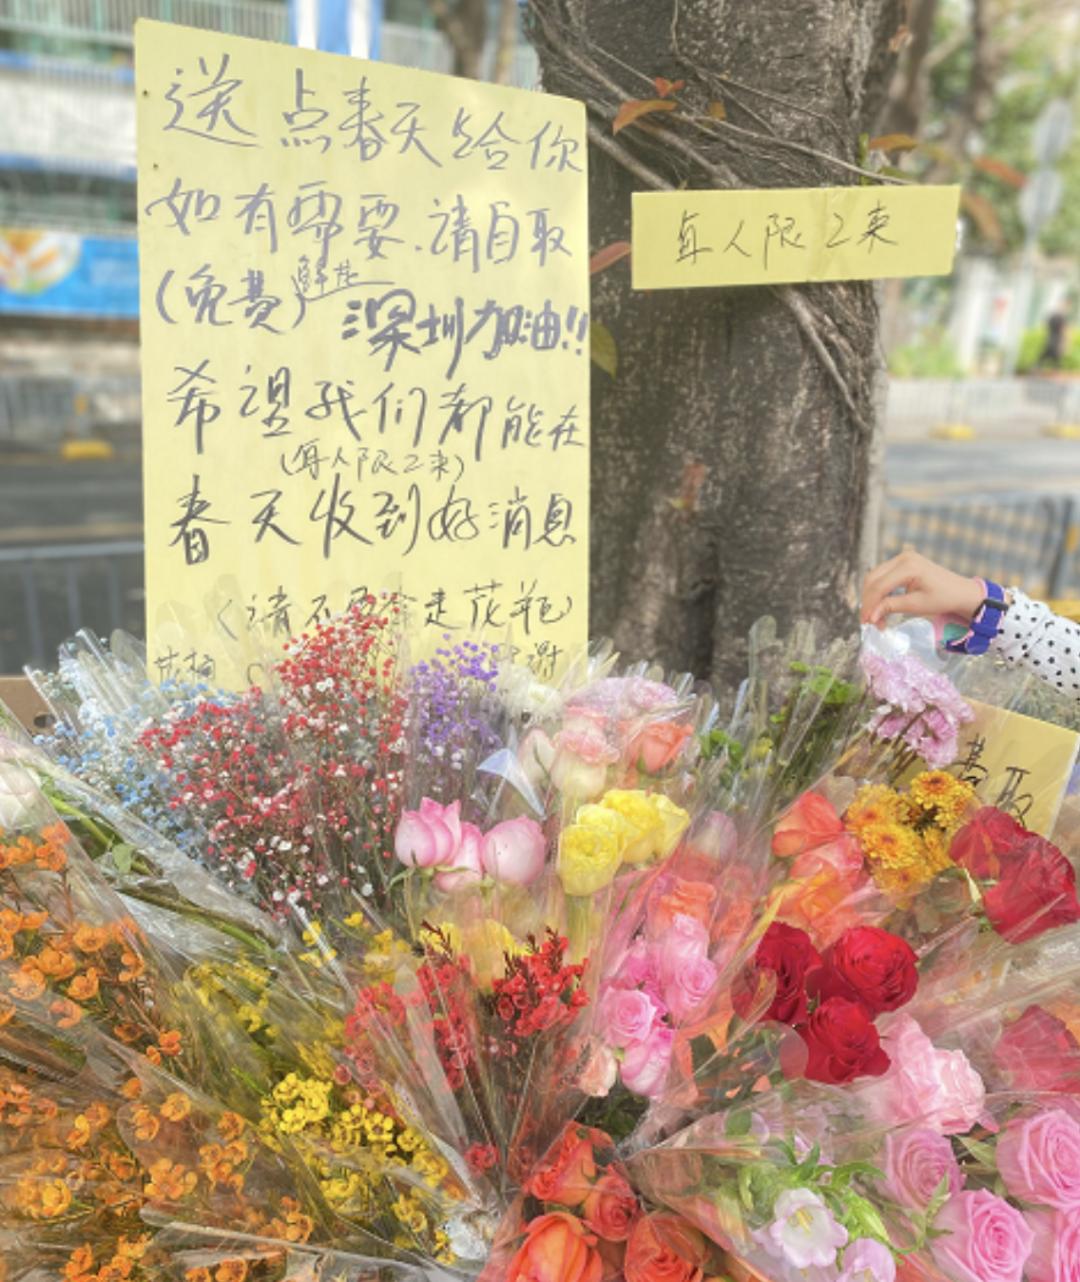 送点春天给你
如有需要.请自取
(免费)鲜花
深圳加油!!
希望我们都能在
(每人限2束)
春天收到好消息
(请不要拿走花桶)
每人限2束
取